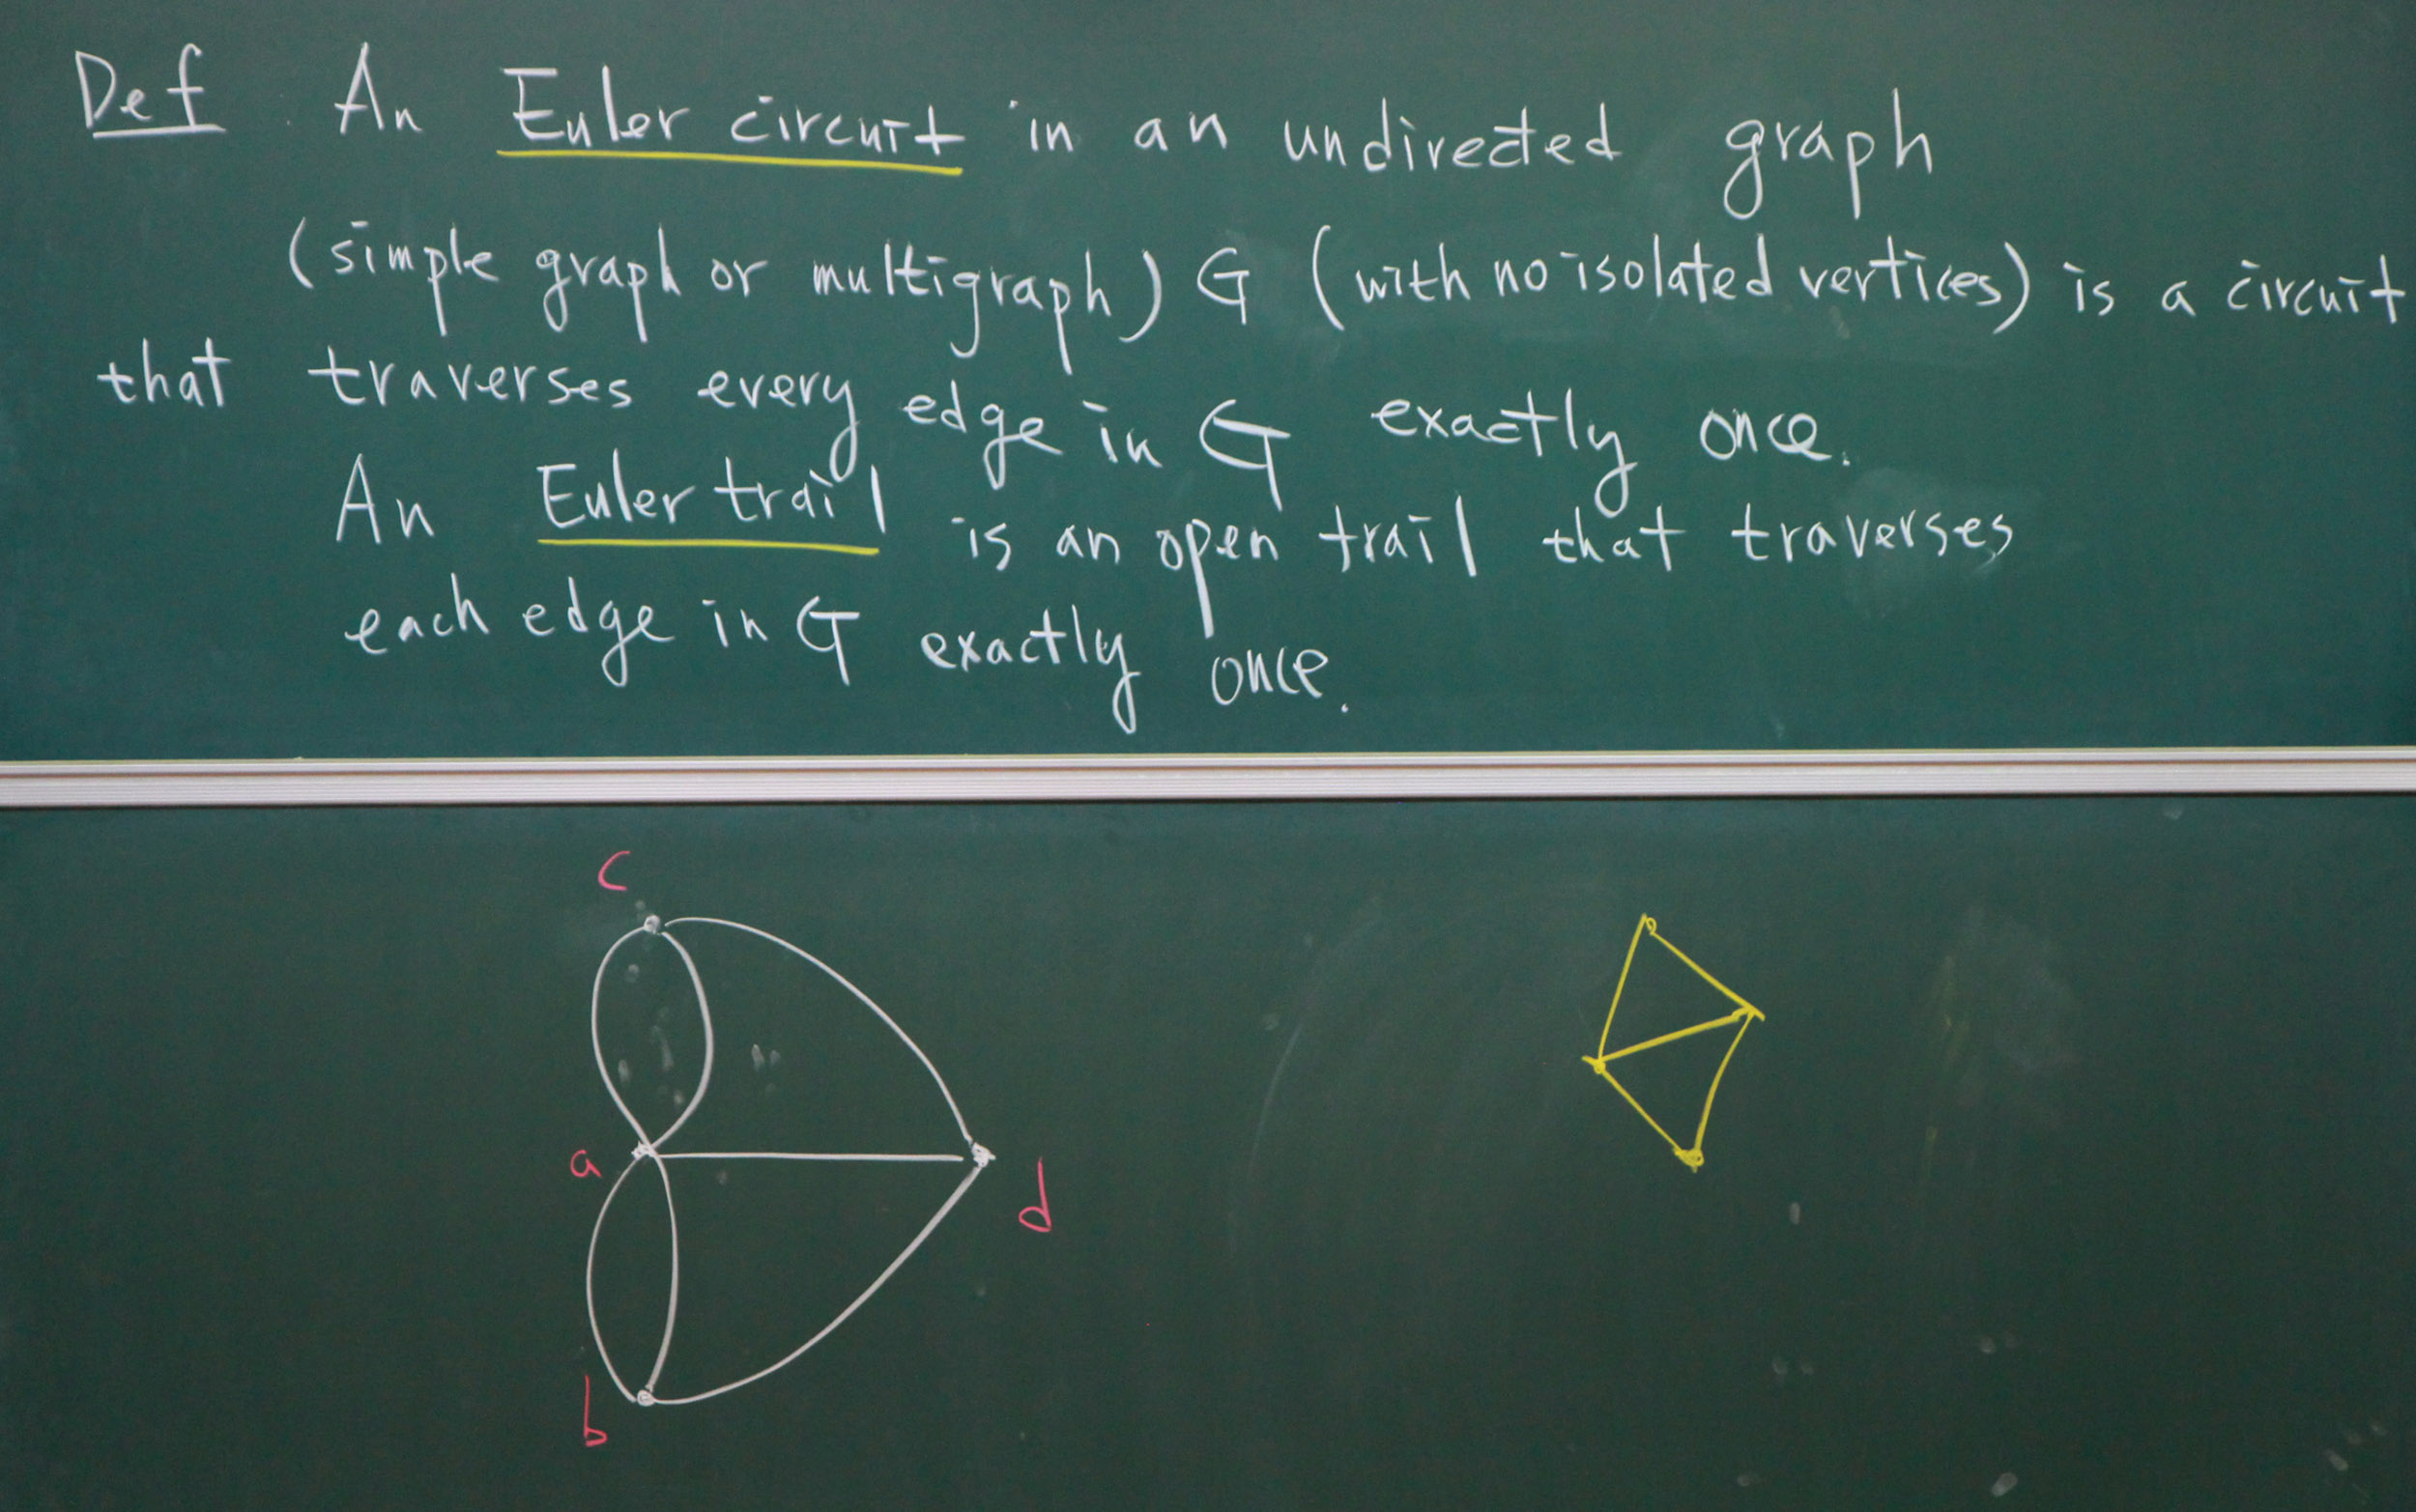 Def. An Euler circuit in an undirected graph
(simple graph or multigraph) G (with no isolated vertices) is a circuit
that traverses every edge in G exactly once.
An Euler trail is an open trail that traverses
each edge in G exactly once.
c
a
d
b